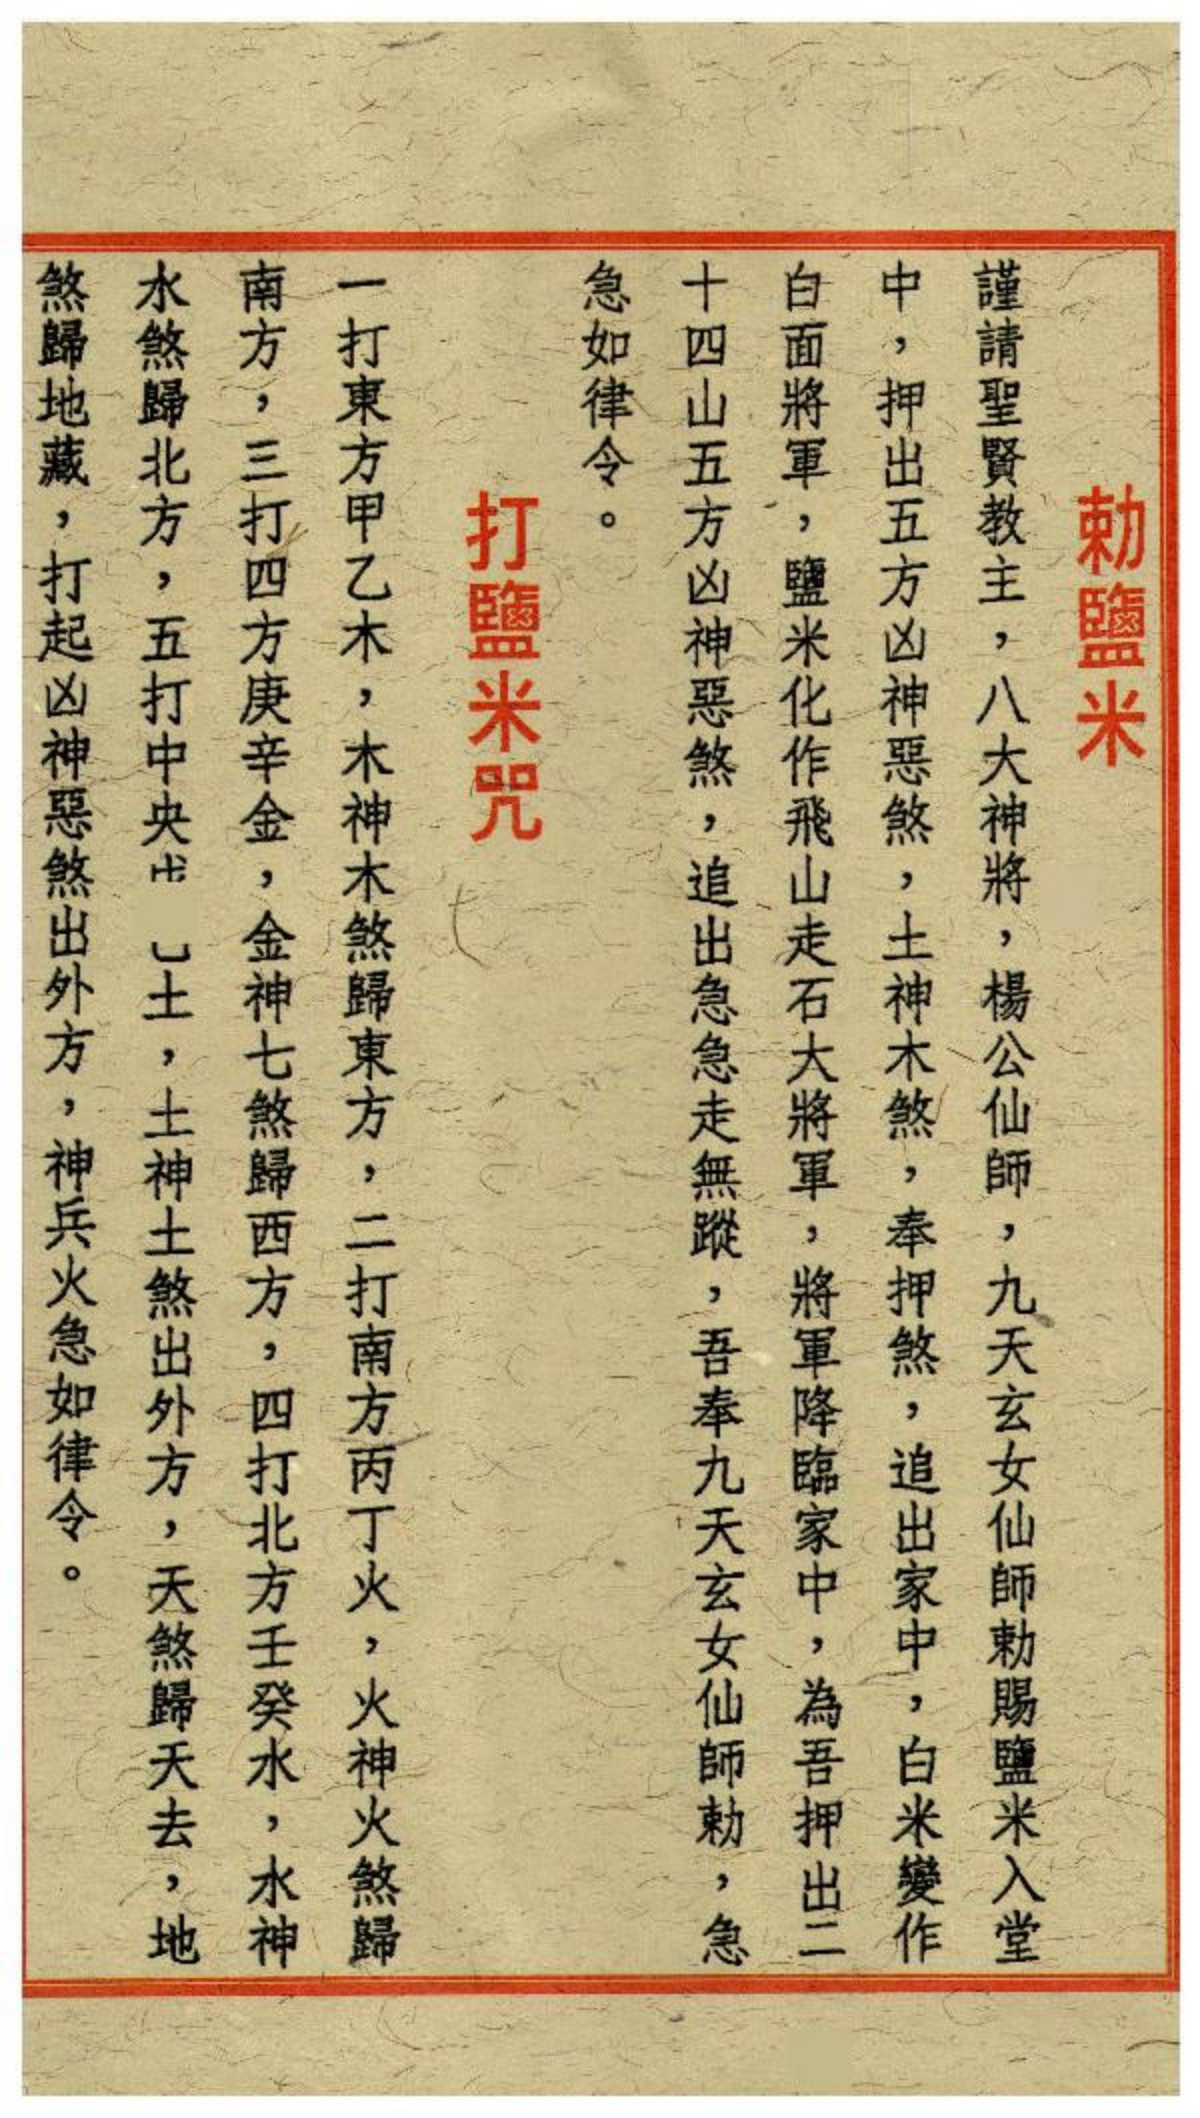 勅鹽米
謹請聖賢教主，八大神將，楊公仙師，九天玄女仙師勅賜鹽米入堂
中，押出五方凶神惡煞，土神木煞，奉押煞，追出家中，白米變作
白面將軍，鹽米化作飛山走石大將軍，將軍降臨家中，為吾押出二
十四山五方凶神惡煞，追出急急走無蹤，吾奉九天玄女仙師勅，急
急如律令。
打鹽米咒
一打東方甲乙木，木神木煞歸東方，二打南方丙丁火，火神火煞歸
南方，三打四方庚辛金，金神七煞歸西方，四打北方壬癸水，水神
水煞歸北方，五打中央土，土神土煞出外方，天煞歸天去，地
煞歸地藏，打起凶神惡煞出外方，神兵火急如律令。